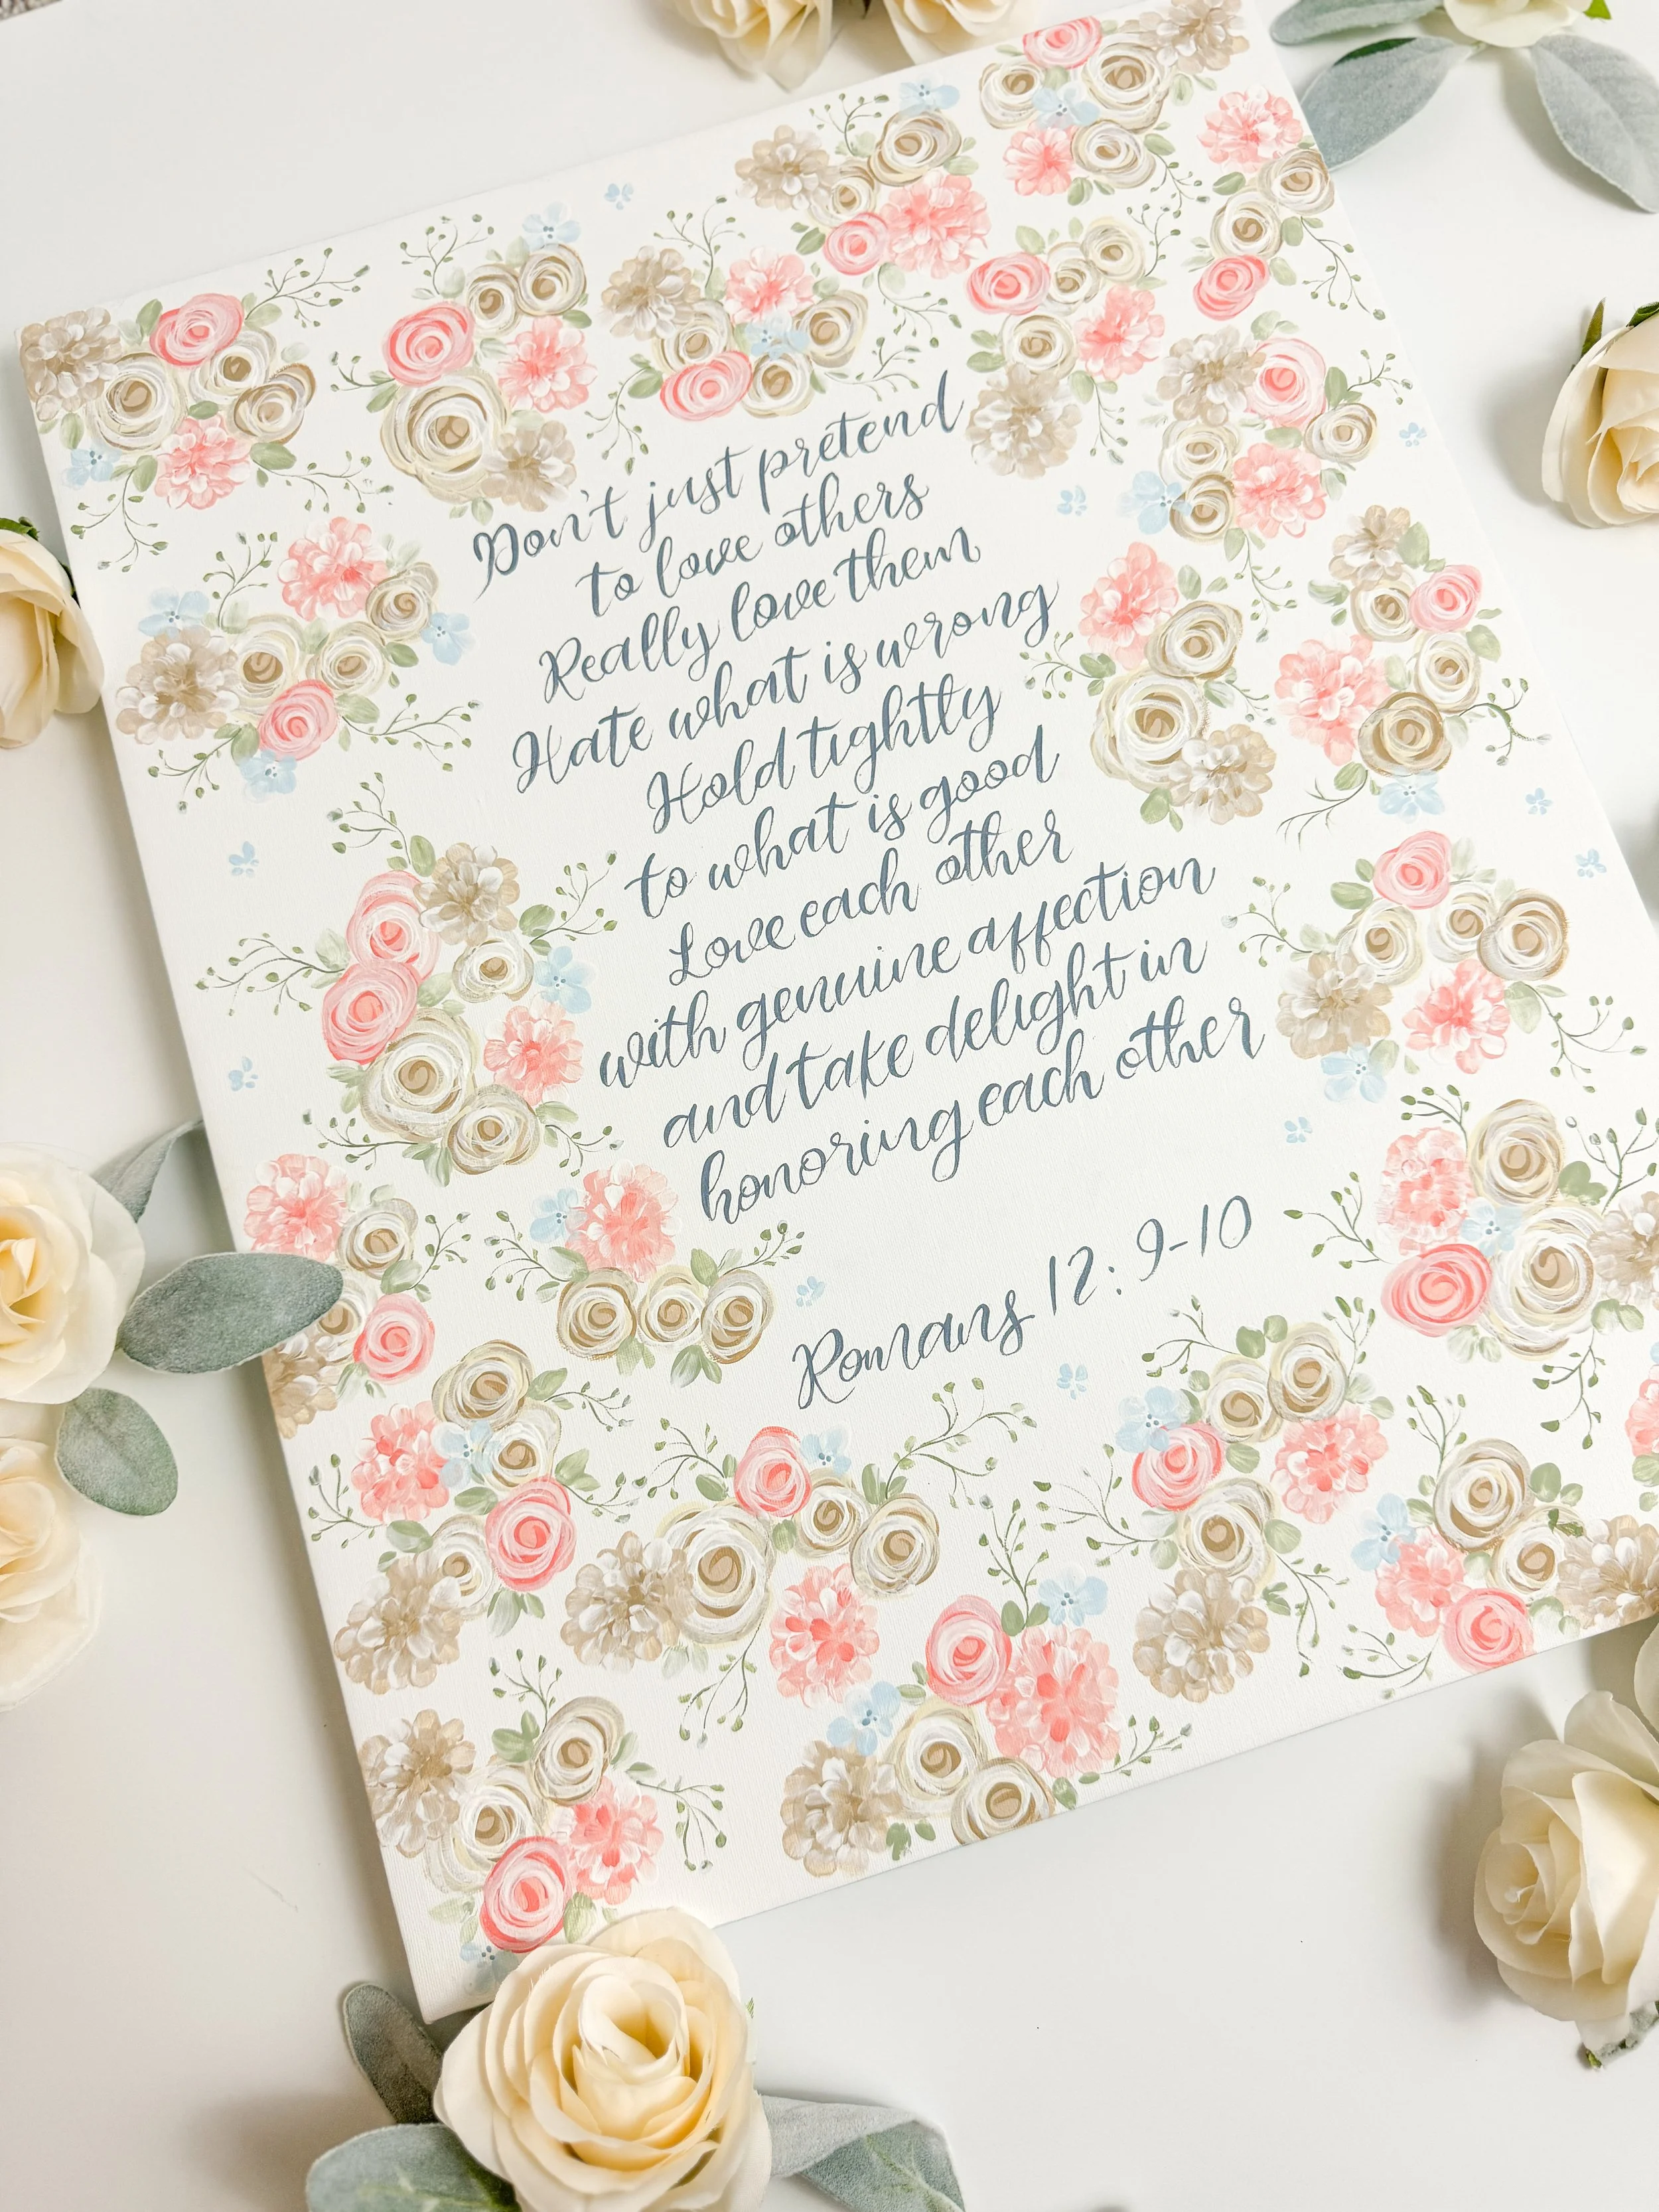 Don't just pretend
to love others
Really love them
Hate what is wrong
Hold tightly
to what is good
Love each other
with genuine affection
and take delight in
honoring each other
Romans 12:9-10